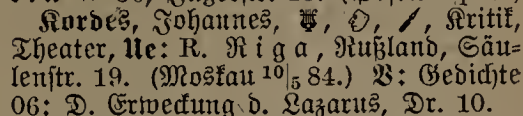 Kordes, Johannes, Kritik,
Theater, Ue: R. Riga, Rußland, Säu-
lenstr. 19. (Moskau 10|5 84.) V: Gedichte
06: D. Erweckung d. Lazarus, Dr. 10.